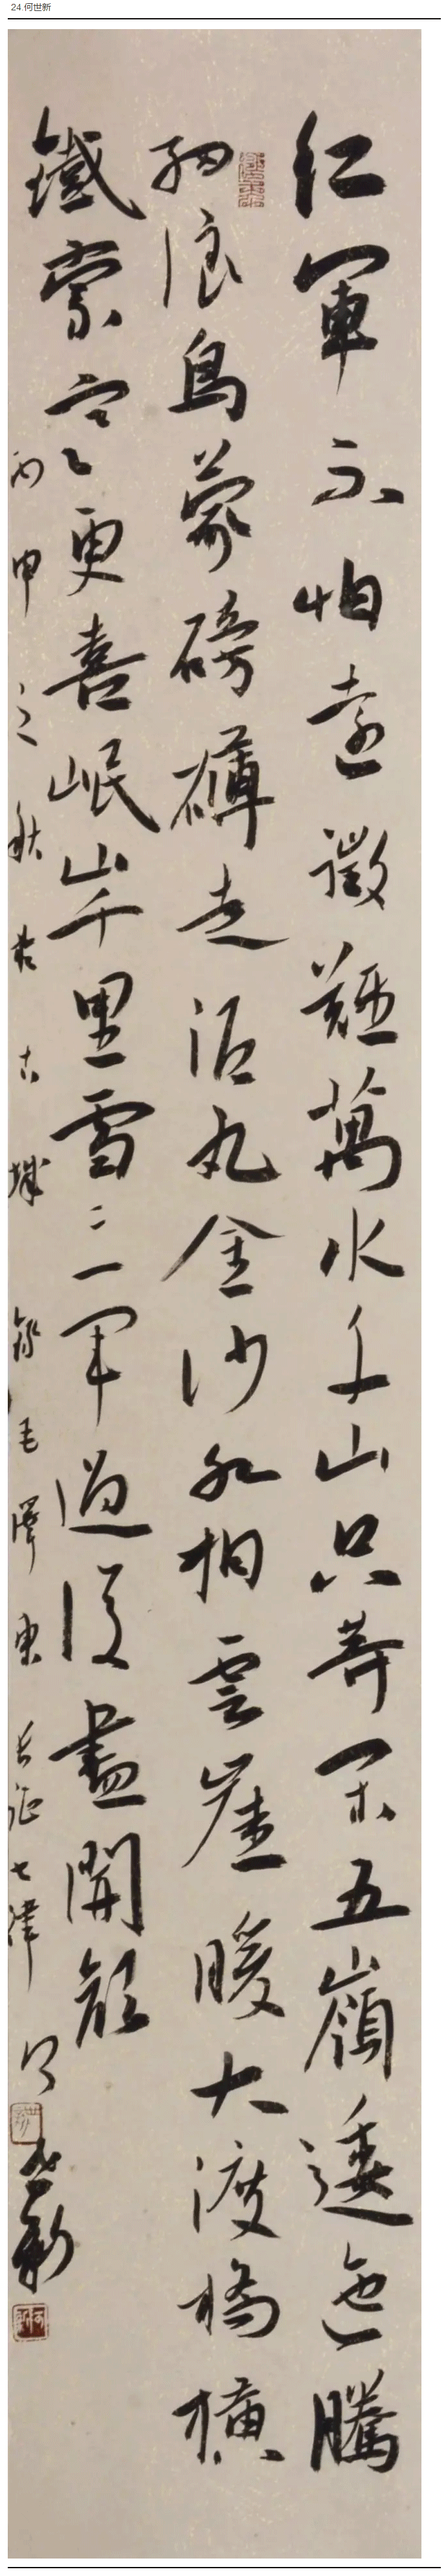 24.何世新
紅軍不怕遠徵難萬水千山只等閑五嶺逶迤騰
細浪烏蒙磅礴走泥丸金沙水拍雲崖暖大渡橋橫
鐵索寒更喜岷山千里雪三軍過後盡開顏
丙申之秋於古城錄毛澤東長征七律 何世新